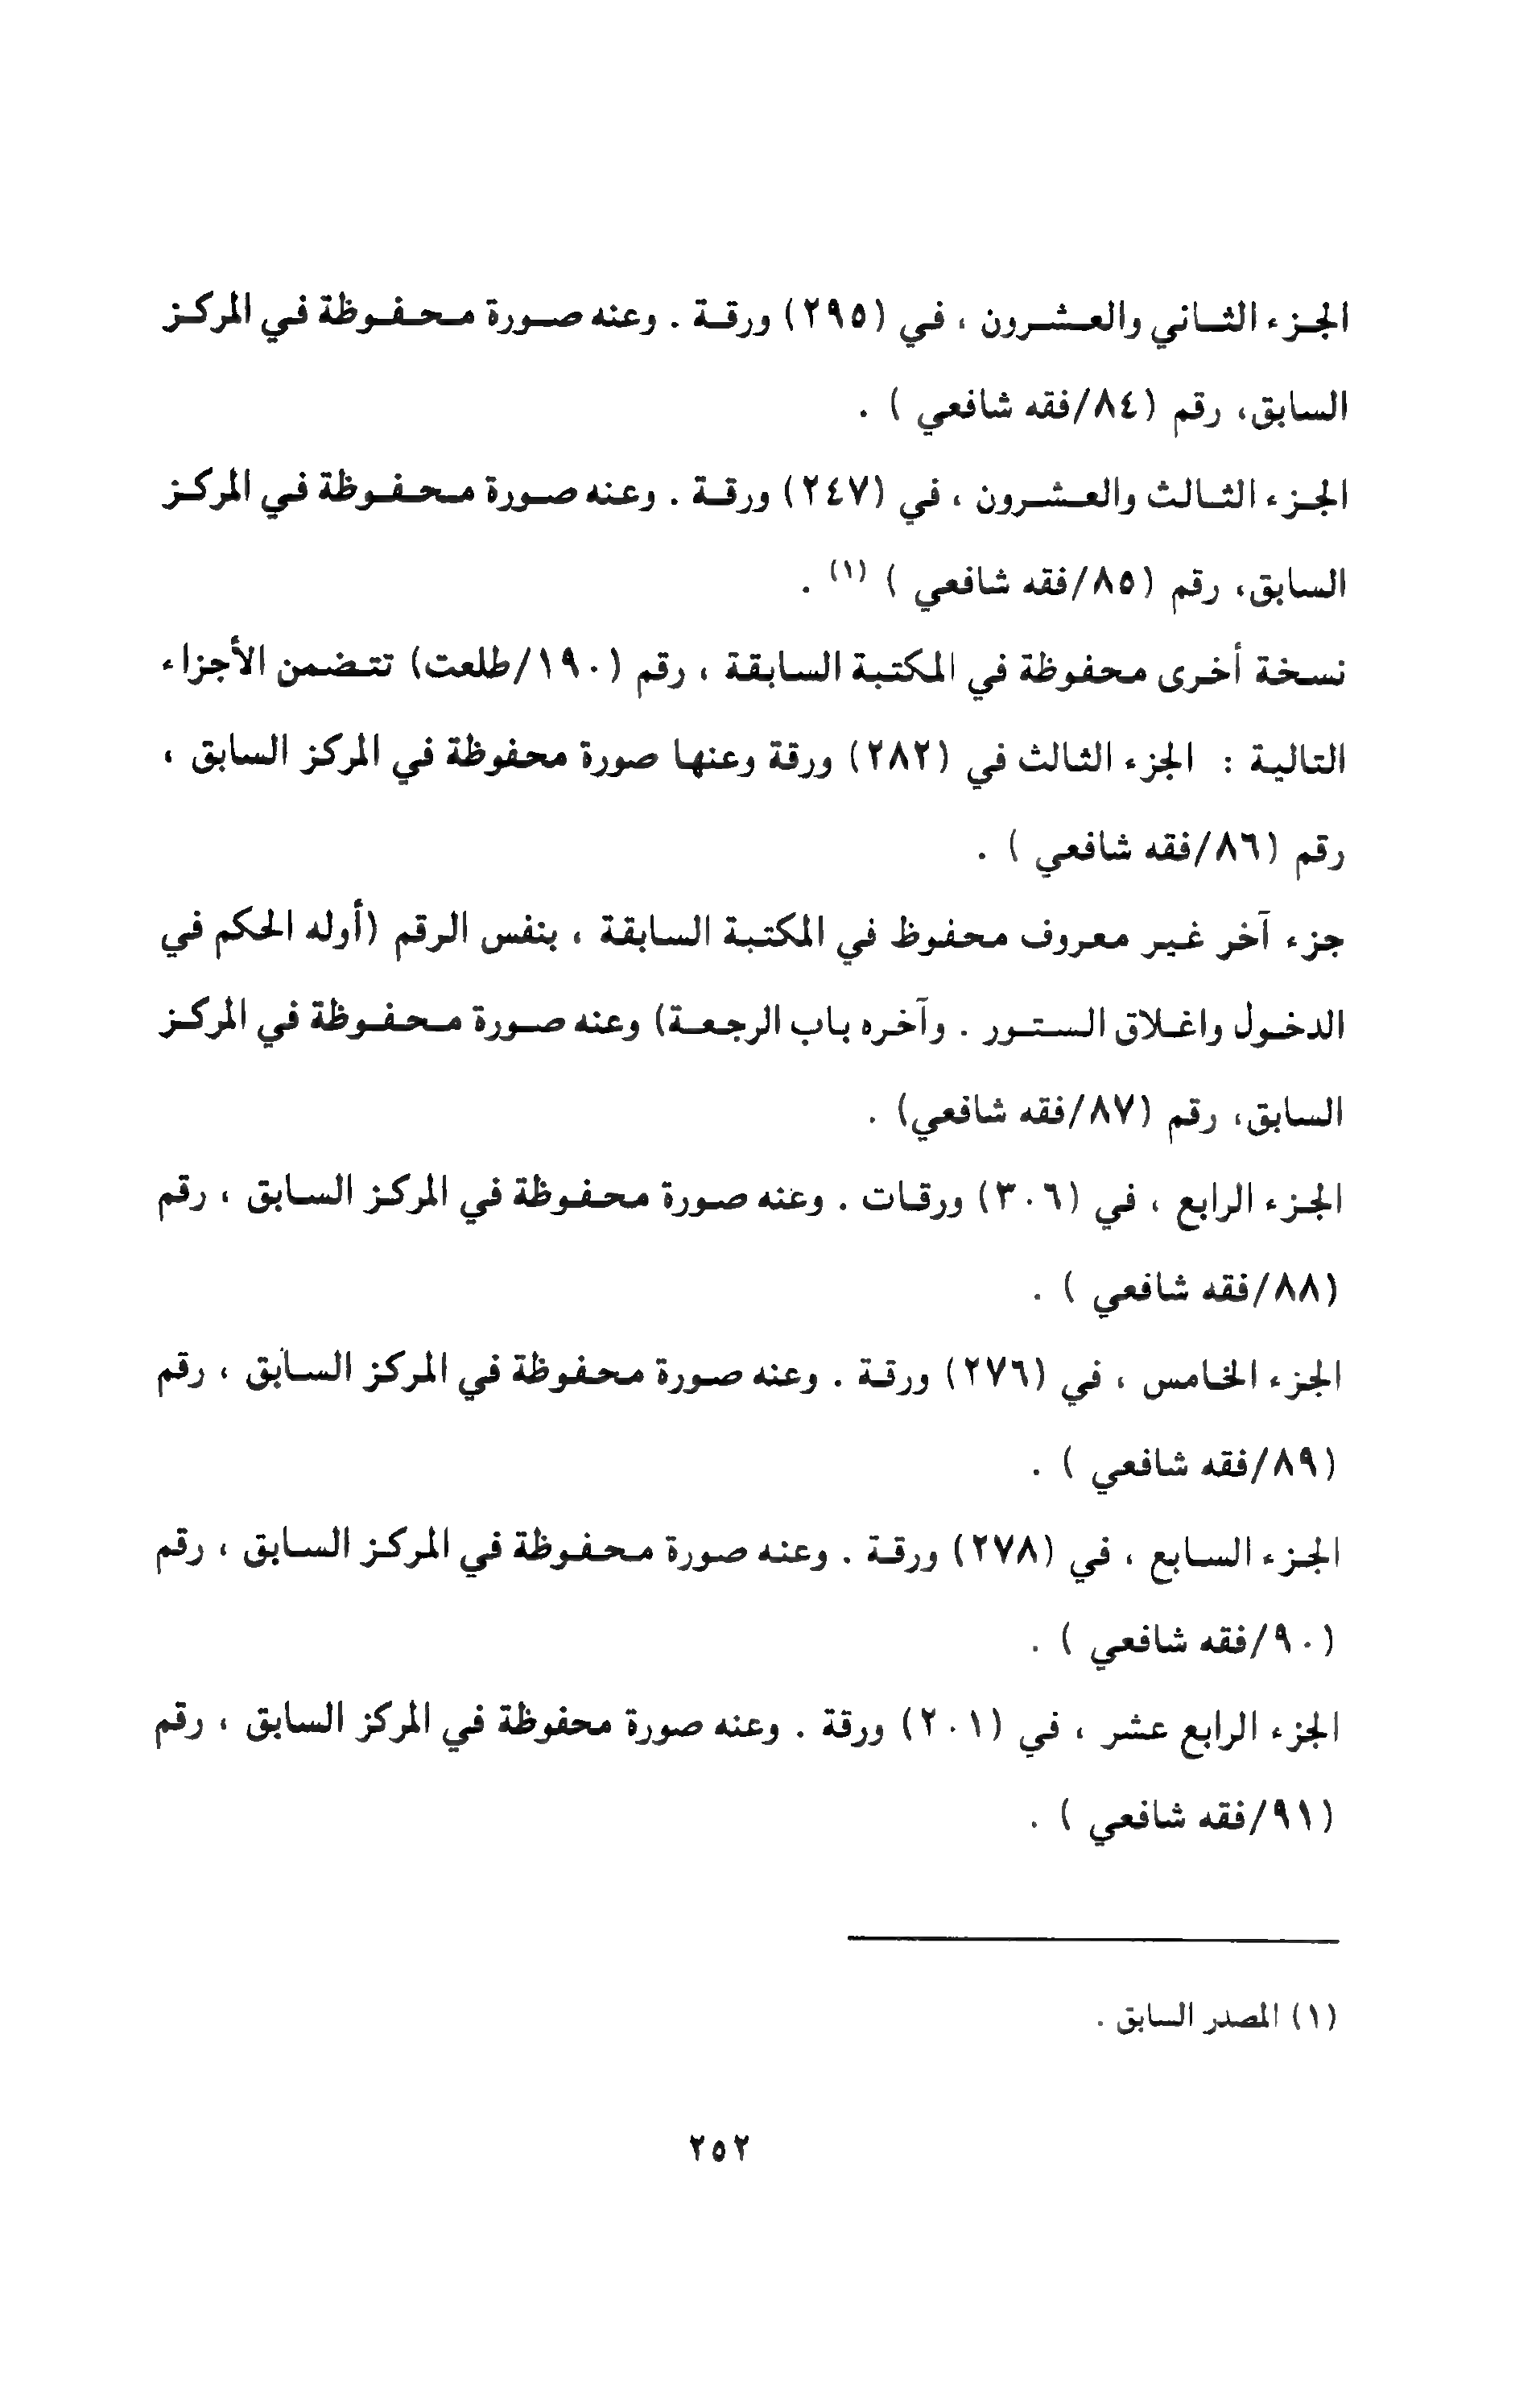 الجزء الثاني والعشرون ، في (٢٩٥) ورقة . وعنه صورة محفوظة في المركز
السابق، رقم (٨٤/فقه شافعي ) .
الجزء الثالث والعشرون ، في (٢٤٧) ورقة . وعنه صورة محفوظة في المركز
السابق، رقم (٨٥/فقه شافعي ) (١) .
نسخة أخرى محفوظة في المكتبة السابقة ، رقم (١٩٠/طلعت) تتضمن الأجزاء
التالية : الجزء الثالث في (٢٨٢) ورقة وعنها صورة محفوظة في المركز السابق ،
رقم (٨٦/فقه شافعي ) .
جزء آخر غير معروف محفوظ في المكتبة السابقة ، بنفس الرقم (أوله الحكم في
الدخول واغلاق الستور . وآخره باب الرجعة) وعنه صورة محفوظة في المركز
السابق، رقم (٨٧/فقه شافعي) .
الجزء الرابع ، في (٣٠٦) ورقات . وعنه صورة محفوظة في المركز السابق ، رقم
(٨٨/فقه شافعي ) .
الجزء الخامس ، في (٢٧٦) ورقة . وعنه صورة محفوظة في المركز السابق ، رقم
(٨٩/فقه شافعي ) .
الجزء السابع ، في (٢٧٨) ورقة . وعنه صورة محفوظة في المركز السابق ، رقم
(٩٠/فقه شافعي ) .
الجزء الرابع عشر ، في (٢٠١) ورقة . وعنه صورة محفوظة في المركز السابق ، رقم
(٩١/فقه شافعي ) .
(١) المصدر السابق .
٢٥٢